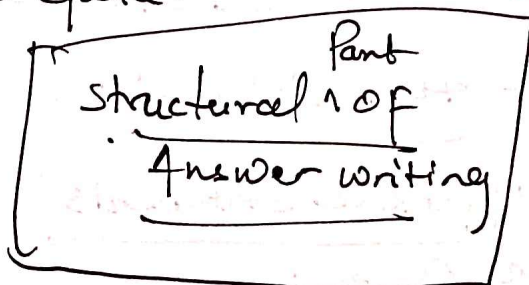 Part
structural ^ of
Answer writing